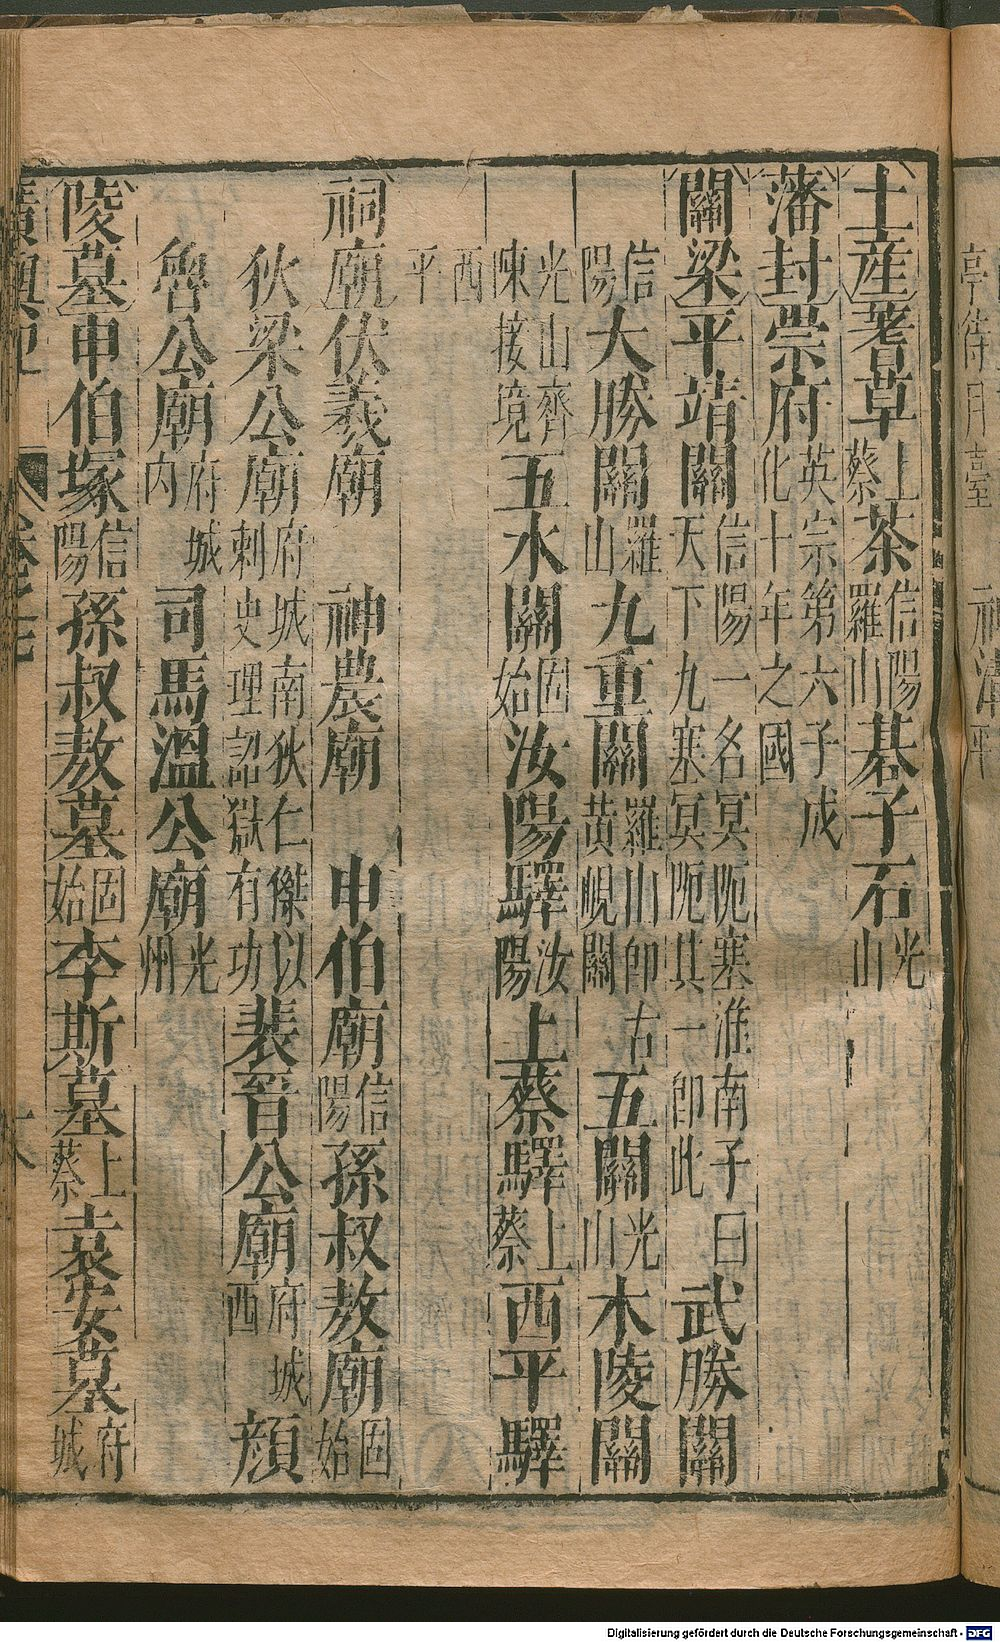 土産蓍草上蔡茶信陽羅山碁子石光山
藩封崇府英宗第六子成化十年之國
關梁平靖關信陽一名冥阨塞淮南子曰天下九塞冥阨其一卽此武勝關
信陽大勝關羅山九重關羅山卽古黄峴關五關光山木陵關
光山齊陳接境五水關固始汝陽驛汝陽上蔡驛上蔡西平驛
西平
祠廟伏羲廟 神農廟 申伯廟信陽孫叔敖廟固始
狄梁公廟府城南狄仁傑以刺史理詔獄有功裴晉公廟府城西顔
魯公廟府城内司馬溫公廟光州
陵墓申伯塚信陽孫叔敖墓固始李斯墓上蔡袁安墓府城
廣輿記 卷之七
Digitalisierung gefördert durch die Deutsche Forschungsgemeinschaft - DFG